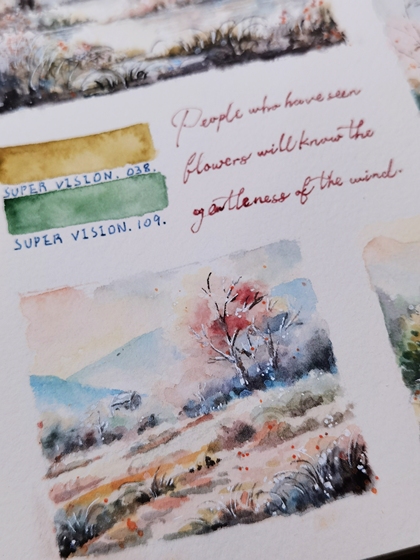 People who have seen
flowers will know the
gentleness of the wind.
SUPER VISION. 038.
SUPER VISION. 109.